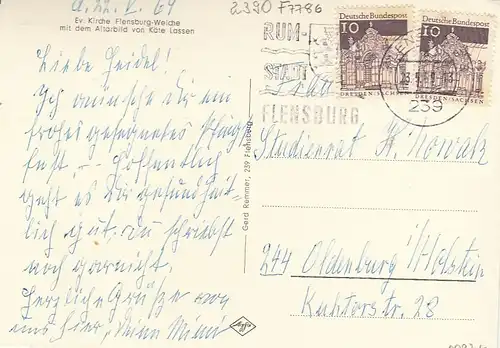 d. 22. V. 69
Ev. Kirche Flensburg-Weiche
mit dem Altarbild von Käte Lassen
Liebe Heidel!
Ich wünsche Dir ein
frohes gesegnetes Pfingst-
fest. — Hoffentlich
geht es Dir gesundheit-
lich gut, du schreibst
noch garnicht.
Herzliche Grüße von
uns hier, Deine Mimi
Gerd Remmer, 239 Flensburg
2390 F7786
RUM-
STADT
FLENSBURG
Deutsche Bundespost
10
DRESDEN/SACHSEN
Deutsche Bundespost
10
DRESDEN/SACHSEN
23.5.69
239
Studienrat H. Nowak
244 Oldenburg i/Holstein
Kuhtorstr. 28